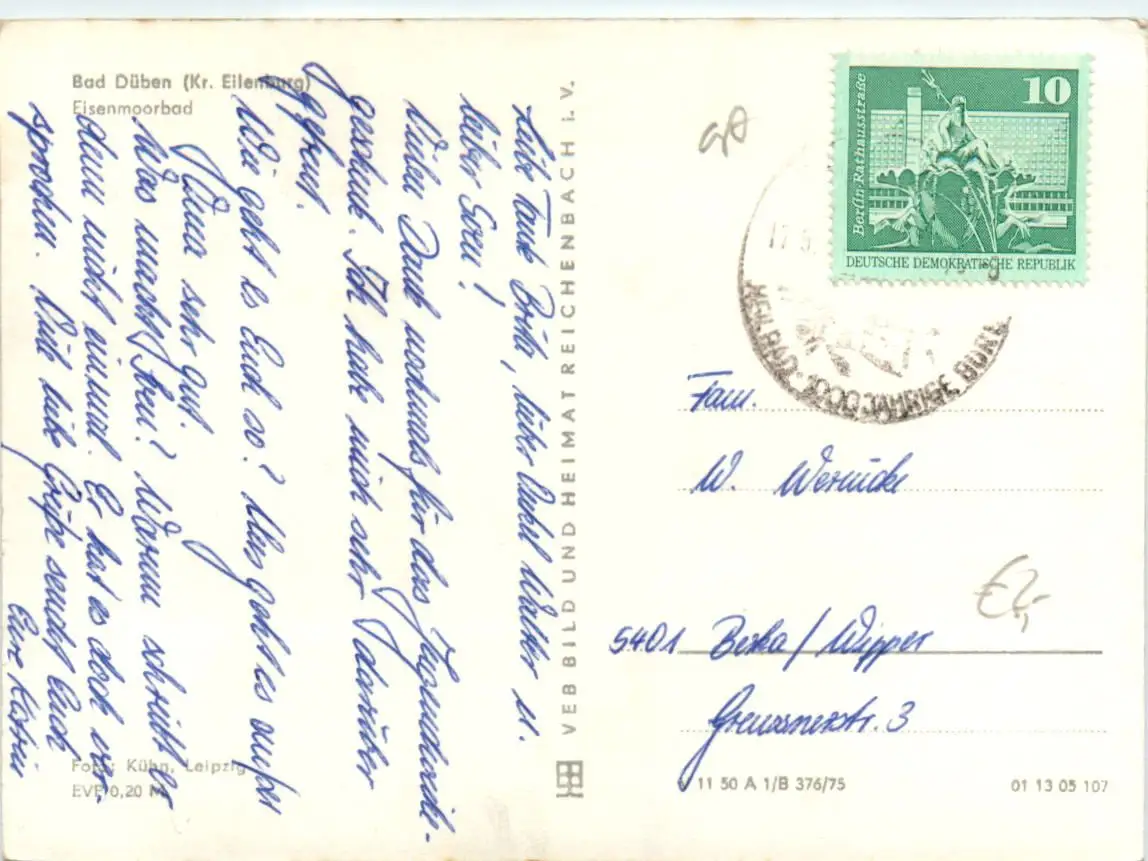 Bad Düben (Kr. Eilenburg)
Eisenmoorbad
Liebe Tante Brita, lieber Onkel Walter u.
lieber Sven!
Vielen Dank nochmals für das Jugendweihe-
geschenk. Ich habe mich sehr darüber
gefreut.
Wie geht es Euch so? Uns geht es außer
Oma sehr gut.
Was macht Sven? Warum schreibt er
denn nicht einmal. Er hat es doch ver-
sprochen. Viele liebe Grüße sendet Euch
Eure Katrin
Foto: Kühn, Leipzig
EVP 0,20 M
VEB BILD UND HEIMAT REICHENBACH i. V.
10
Berlin-Rathausstraße
DEUTSCHE DEMOKRATISCHE REPUBLIK
17.5.
HEILBAD · 1000 JÄHRIGE BURG
Fam.
W. Wernicke
5401 Berka/Wipper
Greussnerstr. 3
€2,-
V 11 50 A 1/B 376/75
01 13 05 107